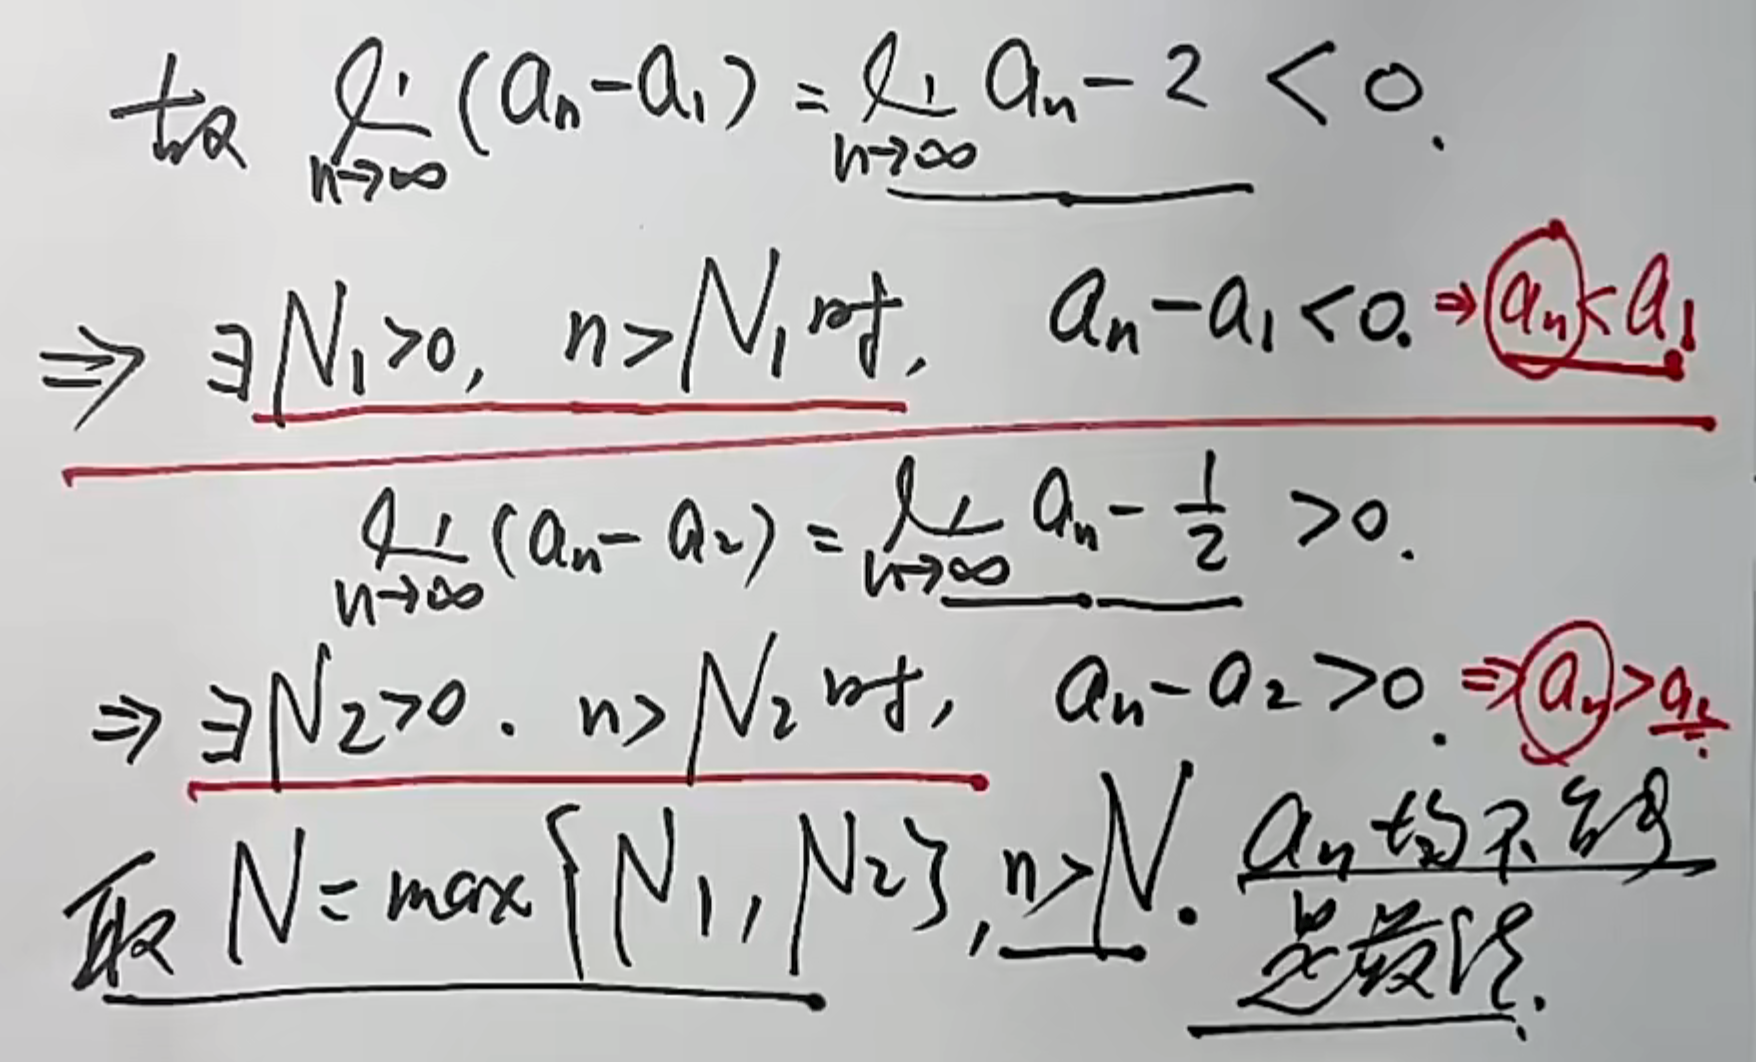 故 lim n→∞ (an-a1) = lim n→∞ an - 2 < 0.
⇒ ∃N1>0, n>N1时, an-a1<0. ⇒ an<a1
lim n→∞ (an-a2) = lim n→∞ an - 1/2 >0.
⇒ ∃N2>0. n>N2时, an-a2>0. ⇒ an>a2.
取 N=max{N1,N2}, n>N. an均不能
是最值.